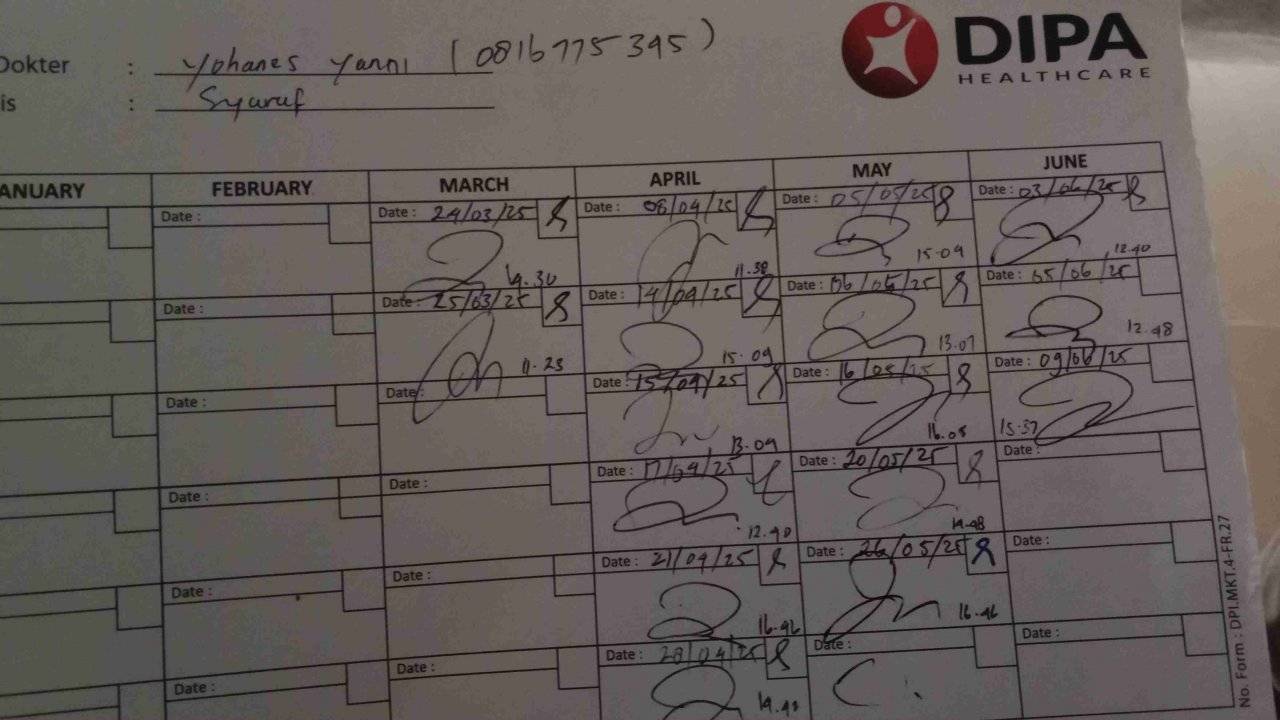 Dokter : Yohanes Yanni (0816775395)
is : Syaraf
DIPA
HEALTHCARE
ANUARY FEBRUARY MARCH APRIL MAY JUNE
Date : Date : 24/03/25 Date : 08/04/25 Date : 05/05/25 Date : 03/06/25
14.30 11.38 15.09 12.40
Date : Date : 25/03/25 Date : 14/04/25 Date : 06/05/25 Date : 05/06/25
11.23 15.09 13.07 12.48
Date : Date : Date : 15/04/25 Date : 16/05/25 Date : 09/06/25
13.09 16.05 15.37
Date : Date : Date : 17/04/25 Date : 20/05/25 Date :
12.40 14.48
Date : Date : Date : 21/04/25 Date : 26/05/25 Date :
16.46 16.46
Date : Date : Date : 28/04/25 Date : Date :
No. Form : DPI.MKT.4-FR.27